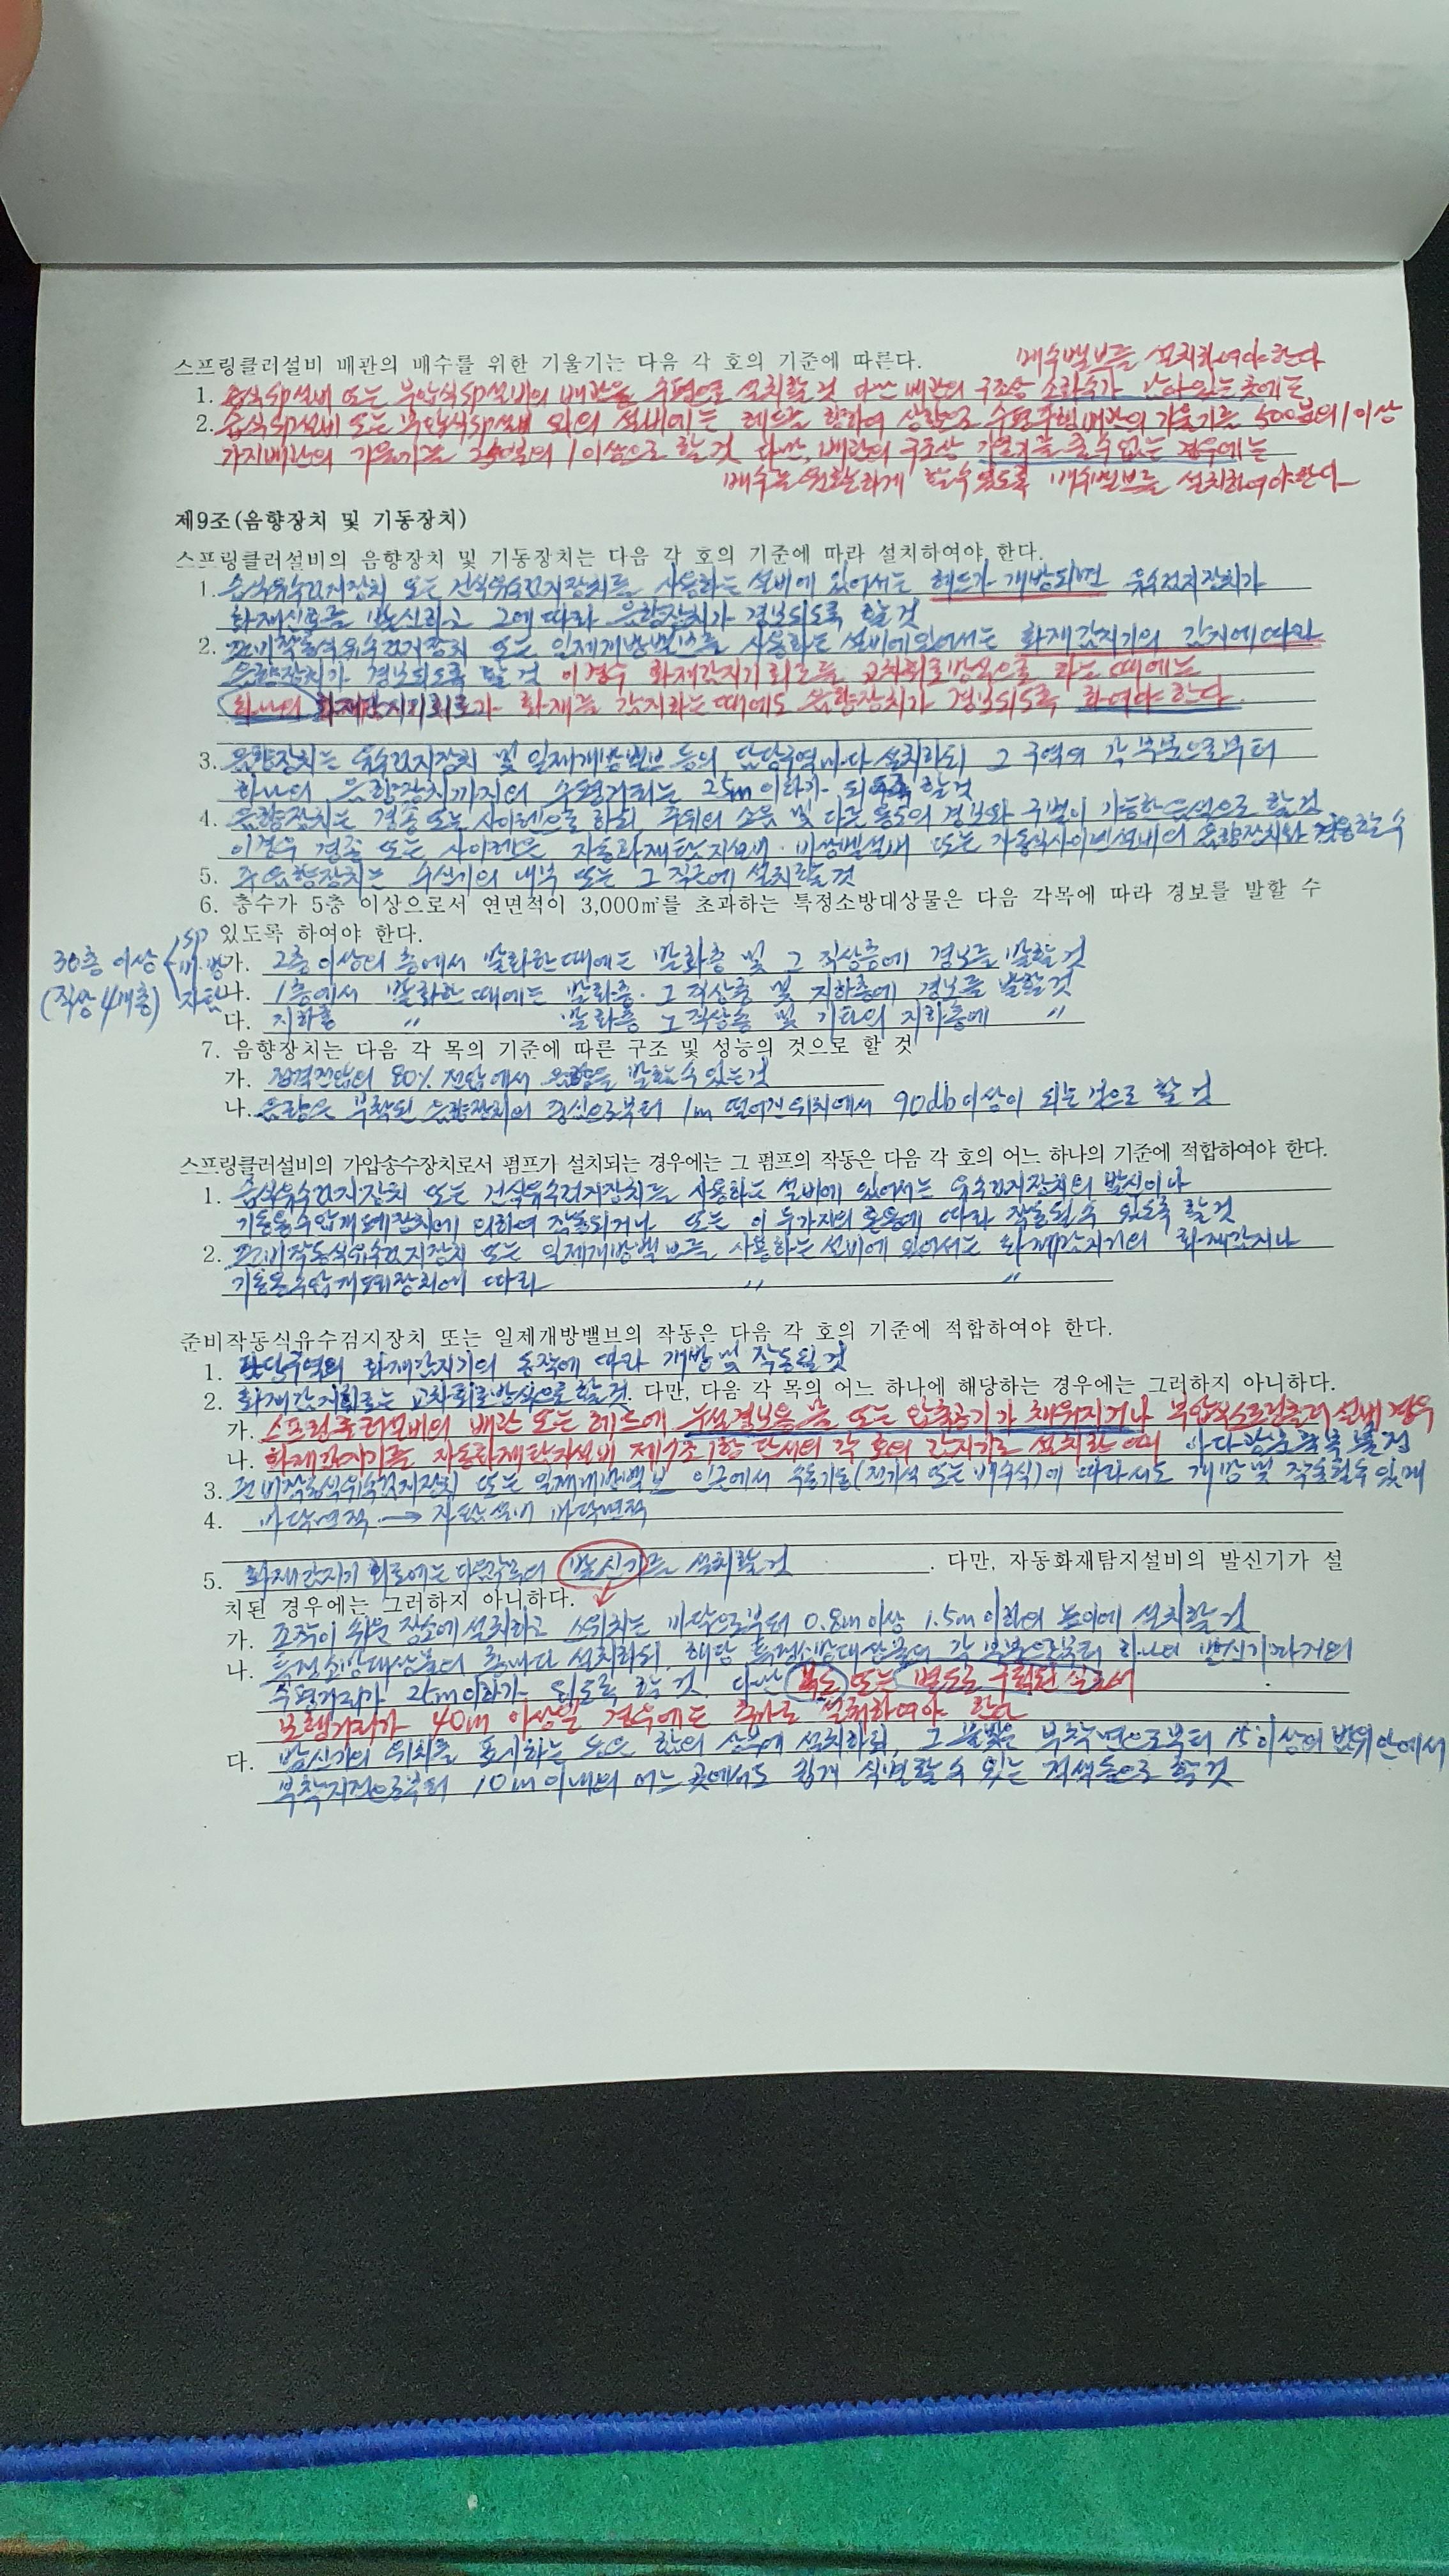 스프링클러설비 배관의 배수를 위한 기울기는 다음 각 호의 기준에 따른다.
배수밸브를 설치하여야한다
1. 습식SP설비 또는 부압식SP설비의 배관을 수평으로 설치할 것 다만 배관의 구조상 소화수가 남아있는 곳에는
2. 습식SP설비 또는 부압식SP설비 외의 설비에는 헤드를 향하여 상향으로 수평주행배관의 기울기를 500분의 1 이상
가지배관의 기울기를 250분의 1 이상으로 할 것 다만, 배관의 구조상 기울기를 줄 수 없는 경우에는
배수를 원활하게 할수 있도록 배수밸브를 설치하여야한다
제9조(음향장치 및 기동장치)
스프링클러설비의 음향장치 및 기동장치는 다음 각 호의 기준에 따라 설치하여야 한다.
1. 습식유수검지장치 또는 건식유수검지장치를 사용하는 설비에 있어서는 헤드가 개방되면 유수검지장치가
화재신호를 발신하고 그에 따라 음향장치가 경보되도록 할 것
2. 준비작동식유수검지장치 또는 일제개방밸브를 사용하는 설비에있어서는 화재감지기의 감지에 따라
음향장치가 경보되도록 할 것 이 경우 화재감지기회로를 교차회로방식으로 하는 때에는
하나의 화재감지기회로가 화재를 감지하는 때에도 음향장치가 경보되도록 하여야 한다
3. 음향장치는 유수검지장치 및 일제개방밸브 등의 담당구역마다 설치하되 그 구역의 각 부분으로부터
하나의 음향장치까지의 수평거리는 25m이하가 되도록 할것
4. 음향장치는 경종 또는 사이렌으로 하되 주위의 소음 및 다른 용도의 경보와 구별이 가능한 음색으로 할것
이경우 경종 또는 사이렌은 자동화재탐지설비·비상벨설비 또는 자동식사이렌설비의 음향장치와 겸용할 수
5. 주음향장치는 수신기의 내부 또는 그 직근에 설치할것
6. 층수가 5층 이상으로서 연면적이 3,000㎡를 초과하는 특정소방대상물은 다음 각목에 따라 경보를 발할 수
있도록 하여야 한다.
30층 이상 SP 비·방 자탐
(직상 4개층)
가. 2층 이상의 층에서 발화한 때에는 발화층 및 그 직상층에 경보를 발할 것
나. 1층에서 발화한 때에는 발화층·그 직상층 및 지하층에 경보를 발할것
다. 지하층 〃 발화층 그 직상층 및 기타의 지하층에 〃
7. 음향장치는 다음 각 목의 기준에 따른 구조 및 성능의 것으로 할 것
가. 정격전압의 80% 전압에서 음향을 발할 수 있는것
나. 음량은 부착된 음향장치의 중심으로부터 1m 떨어진 위치에서 90db이상이 되는 것으로 할 것
스프링클러설비의 가압송수장치로서 펌프가 설치되는 경우에는 그 펌프의 작동은 다음 각 호의 어느 하나의 기준에 적합하여야 한다.
1. 습식유수검지장치 또는 건식유수검지장치를 사용하는 설비에 있어서는 유수검지장치의 발신이나
기동용수압개폐장치에 의하여 작동되거나 또는 이 두가지의 혼용에 따라 작동될 수 있도록 할것
2. 준비작동식유수검지장치 또는 일제개방밸브를 사용하는 설비에 있어서는 화재감지기의 화재감지나
기동용수압개폐장치에 따라 〃 〃
준비작동식유수검지장치 또는 일제개방밸브의 작동은 다음 각 호의 기준에 적합하여야 한다.
1. 담당구역의 화재감지기의 동작에 따라 개방 및 작동될 것
2. 화재감지회로는 교차회로방식으로 할것. 다만, 다음 각 목의 어느 하나에 해당하는 경우에는 그러하지 아니하다.
가. 스프링클러설비의 배관 또는 헤드에 누설경보용 물 또는 압축공기가 채워지거나 부압식스프링클러설비 경우
나. 화재감지기를 자동화재탐지설비 제7조1항 단서의 각 호의 감지기로 설치한 때
3. 준비작동식유수검지장치 또는 일제개방밸브 인근에서 수동기동(전기식 또는 배수식)에 따라서도 개방 및 작동될수 있게
4. 바닥면적 → 자탐설비 바닥면적
5. 화재감지기 회로에는 다음각목의 발신기를 설치할것. 다만, 자동화재탐지설비의 발신기가 설
치된 경우에는 그러하지 아니하다.
가. 조작이 쉬운 장소에 설치하고 스위치는 바닥으로부터 0.8m이상 1.5m이하의 높이에 설치할 것
나. 특정소방대상물의 층마다 설치하되, 해당 특정소방대상물의 각 부분으로부터 하나의 발신기까지의
수평거리가 25m이하가 되도록 할 것. 다만 복도 또는 별도로 구획된 실로서
보행거리가 40m 이상일 경우에는 추가로 설치하여야 한다
다. 발신기의 위치를 표시하는 등은 함의 상부에 설치하되, 그 불빛은 부착면으로부터 15°이상의 범위안에서
부착지점으로부터 10m이내의 어느 곳에서도 쉽게 식별할 수 있는 적색등으로 할것